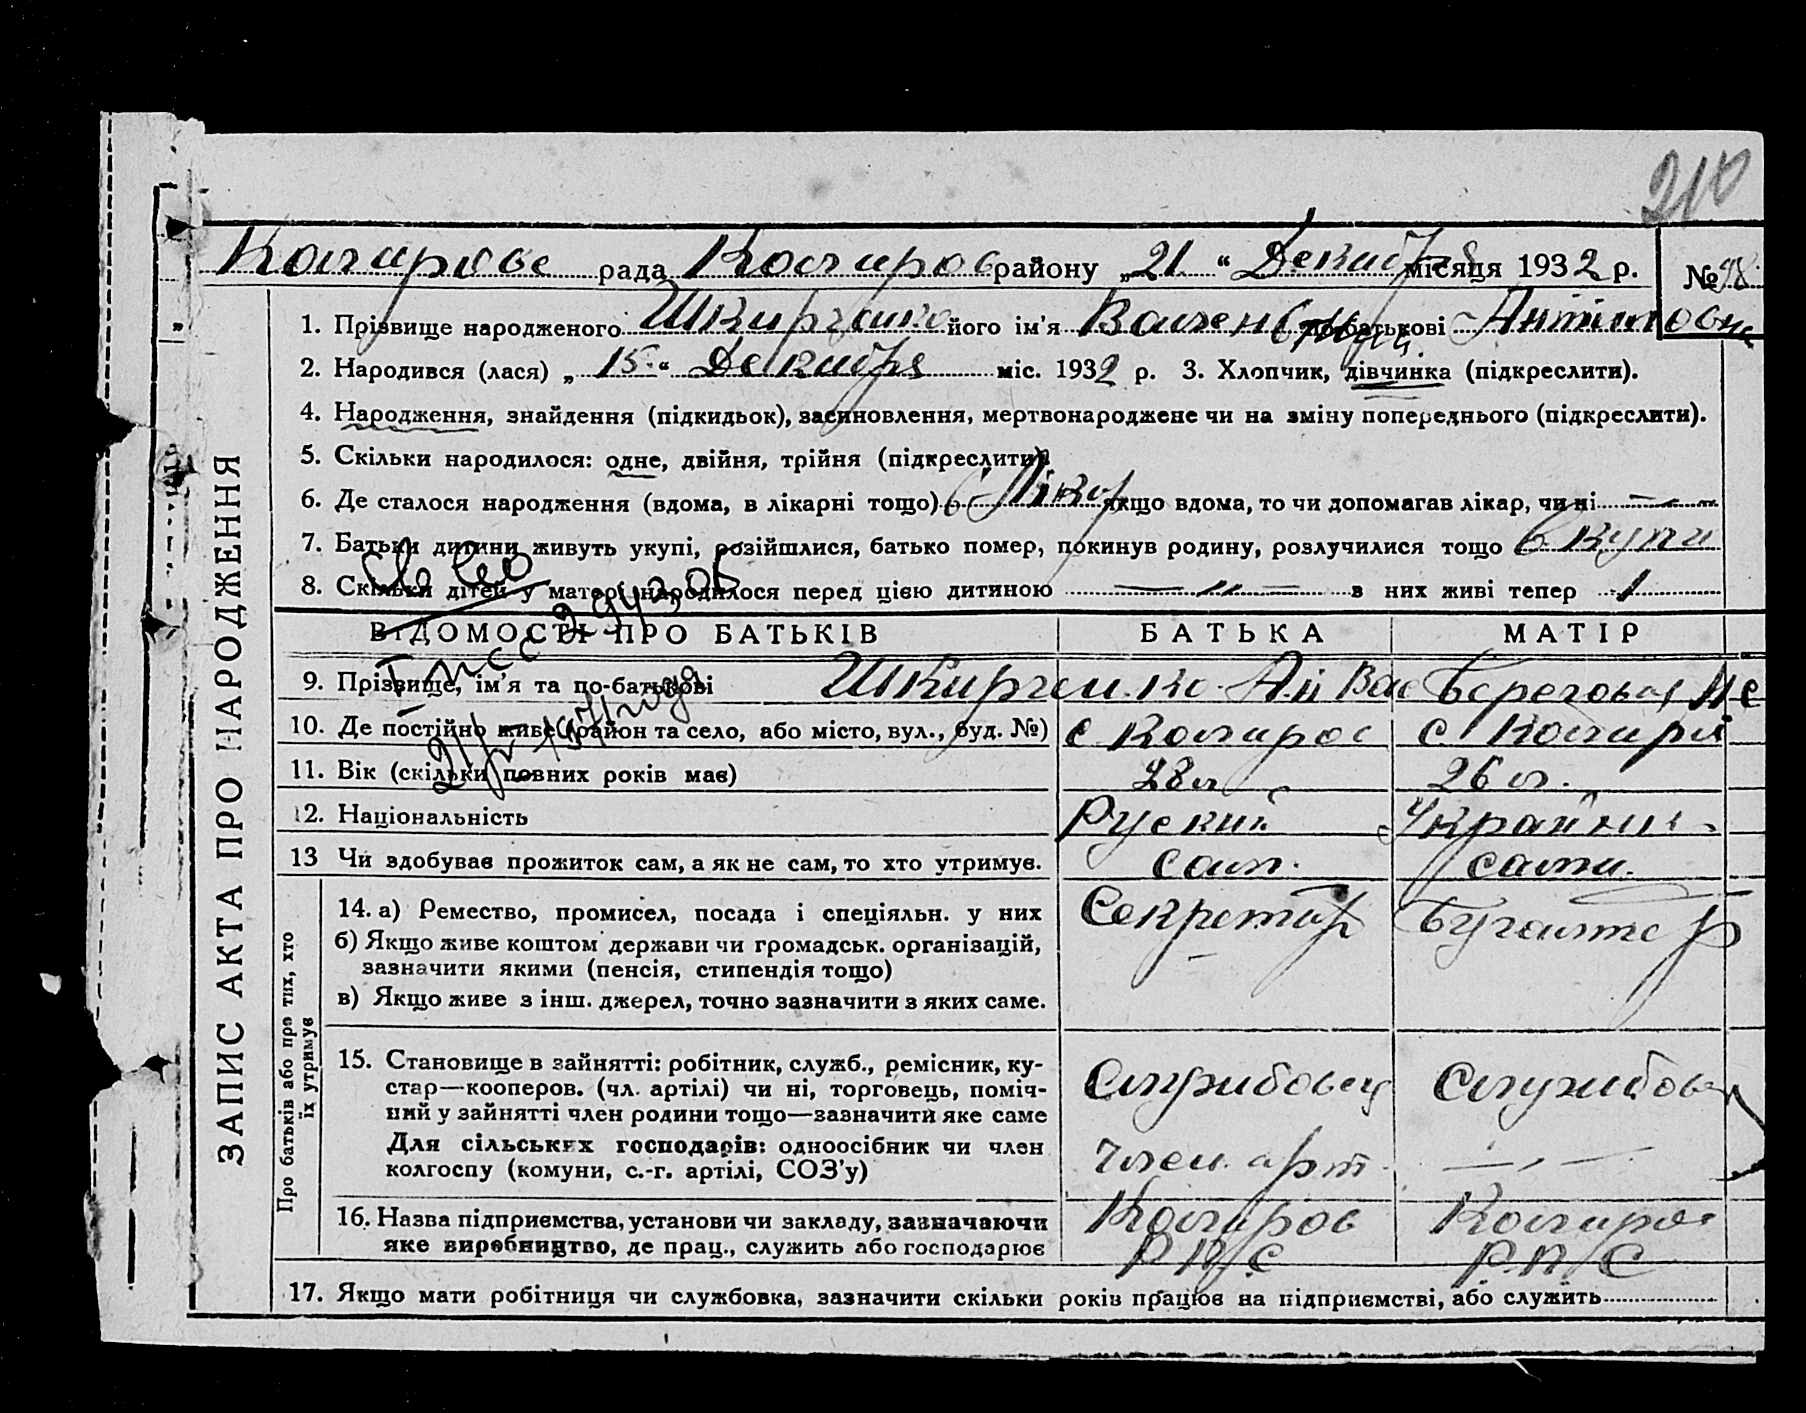 210
рада району „21“ Декабря місяця 1932 р. №98
1. Прізвище народженого його ім'я Валентина по батькові
2. Народився (лася) „15“ Декабря міс. 1932 р. 3. Хлопчик, дівчинка (підкреслити).
4. Народження, знайдення (підкидьок), засиновлення, мертвонароджене чи на зміну попереднього (підкреслити).
5. Скільки народилося: одне, двійня, трійня (підкреслити)
6. Де сталося народження (вдома, в лікарні тощо) в Лікар якщо вдома, то чи допомагав лікар, чи ні —
7. Батьки дитини живуть укупі, розійшлися, батько помер, покинув родину, розлучилися тощо вкупи
8. Скільки дітей у матері народилося перед цією дитиною — „ — в них живі тепер 1
Св во
ВІДОМОСТІ ПРО БАТЬКІВ БАТЬКА МАТІР
9. Прізвище, ім'я та по-батькові Береговая
10. Де постійно живе (район та село, або місто, вул., буд. №) с с
11. Вік (скільки повних років має) 28 л 26 л.
12. Національність Руский Україн
13 Чи здобуває прожиток сам, а як не сам, то хто утримує. сам. сама.
ЗАПИС АКТА ПРО НАРОДЖЕННЯ
Про батьків або про тих, хто
їх утримує
14. а) Ремество, промисел, посада і спеціяльн. у них Секретар Бугалтер
б) Якщо живе коштом держави чи громадськ. організацій,
зазначити якими (пенсія, стипендія тощо)
в) Якщо живе з інш. джерел, точно зазначити з яких саме.
15. Становище в зайнятті: робітник, служб., ремісник, ку-
стар—кооперов. (чл. артілі) чи ні, торговець, поміч-
ний у зайнятті член родини тощо—зазначити яке саме
Службовец Службов
Для сільських господарів: одноосібник чи член
колгоспу (комуни, с.-г. артілі, СОЗ'у)
член. арт — , —
16. Назва підприємства, установи чи закладу, зазначаючи
яке виробництво, де прац., служить або господарює
Р.П.С Р.П.С
17. Якщо мати робітниця чи службовка, зазначити скільки років працює на підприємстві, або служить